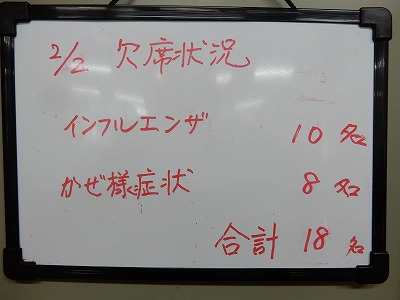 2/2 欠席状況
インフルエンザ 10名
かぜ様症状 8名
合計 18名